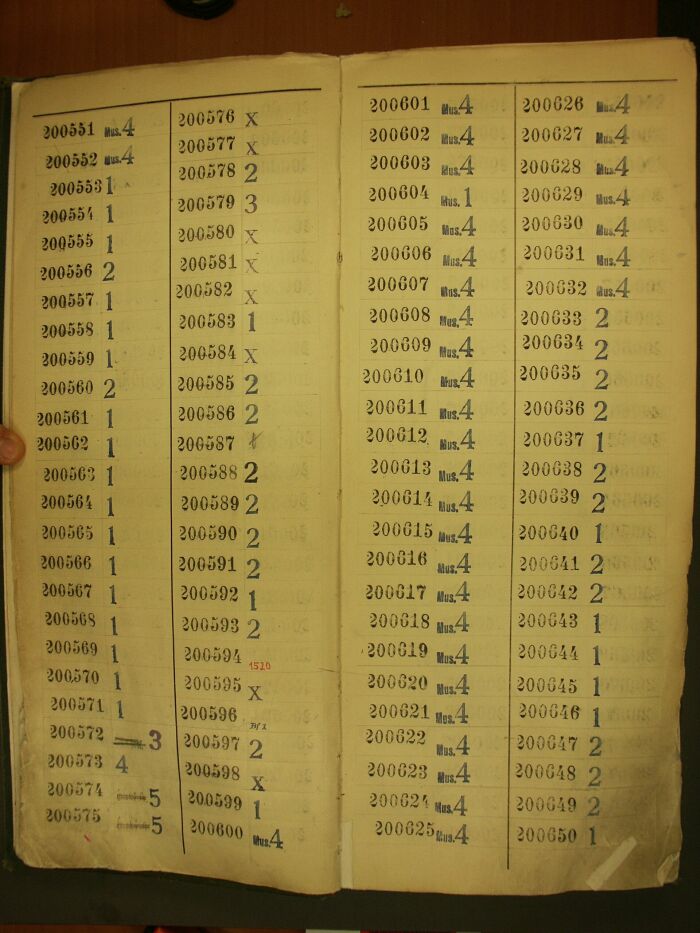 200551 Mus.4
200552 Mus.4
200553 1
200554 1
200555 1
200556 2
200557 1
200558 1
200559 1
200560 2
200561 1
200562 1
200563 1
200564 1
200565 1
200566 1
200567 1
200568 1
200569 1
200570 1
200571 1
200572 3
200573 4
200574 5
200575 5
200576 X
200577 X
200578 2
200579 3
200580 X
200581 X
200582 X
200583 1
200584 X
200585 2
200586 2
200587
200588 2
200589 2
200590 2
200591 2
200592 1
200593 2
200594 1510
200595 X
200596
200597 2
200598 X
200599 1
200600 Mus.4
200601 Mus.4
200602 Mus.4
200603 Mus.4
200604 Mus.1
200605 Mus.4
200606 Mus.4
200607 Mus.4
200608 Mus.4
200609 Mus.4
200610 Mus.4
200611 Mus.4
200612 Mus.4
200613 Mus.4
200614 Mus.4
200615 Mus.4
200616 Mus.4
200617 Mus.4
200618 Mus.4
200619 Mus.4
200620 Mus.4
200621 Mus.4
200622 Mus.4
200623 Mus.4
200624 Mus.4
200625 Mus.4
200626 Mus.4
200627 Mus.4
200628 Mus.4
200629 Mus.4
200630 Mus.4
200631 Mus.4
200632 Mus.4
200633 2
200634 2
200635 2
200636 2
200637 1
200638 2
200639 2
200640 1
200641 2
200642 2
200643 1
200644 1
200645 1
200646 1
200647 2
200648 2
200649 2
200650 1